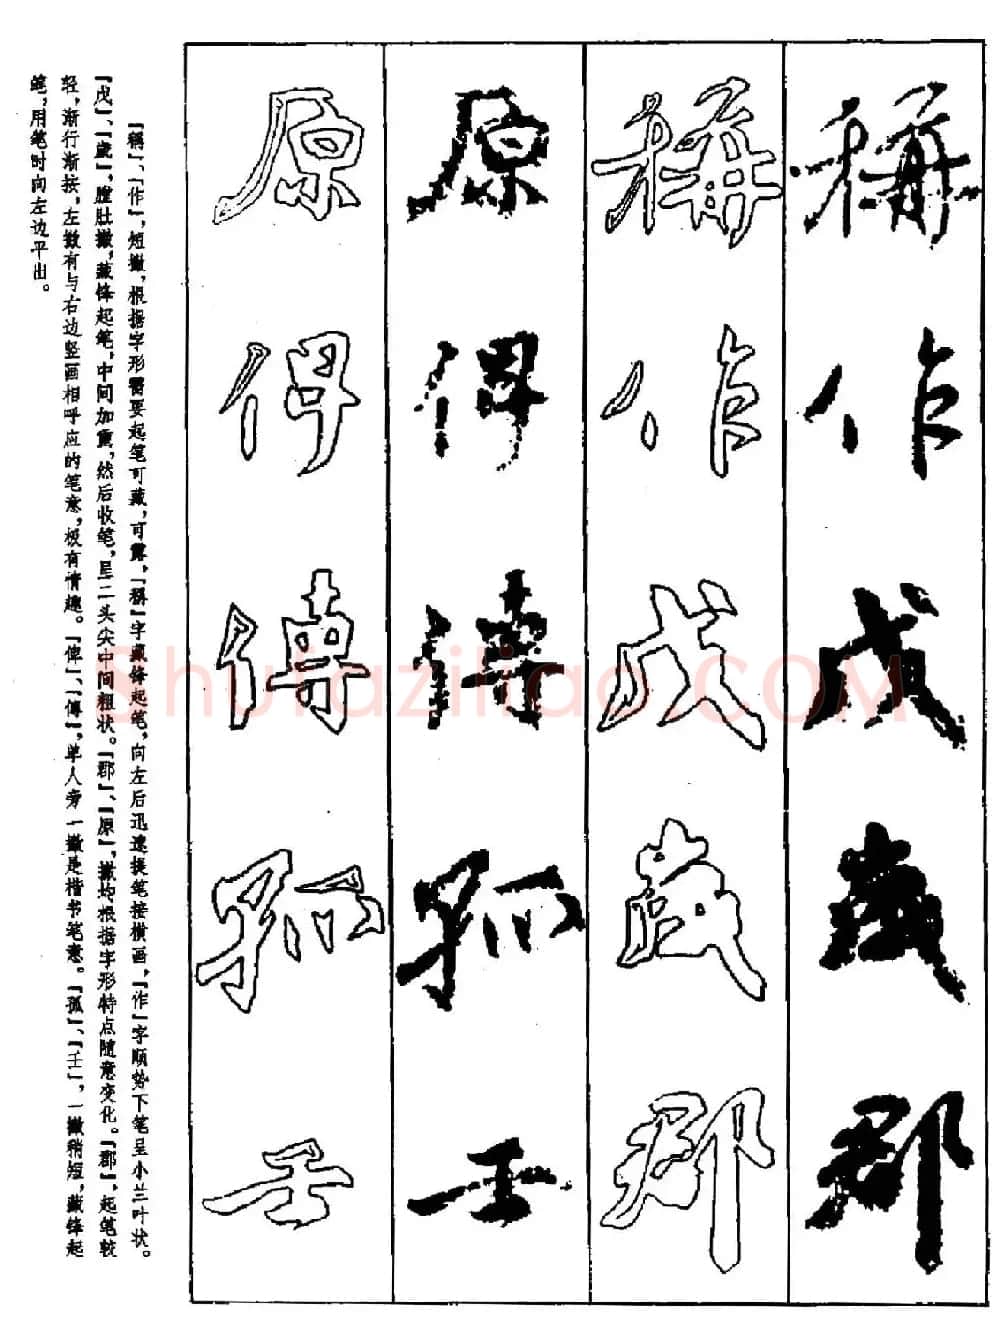 稱
作
戊
歲
郡
稱
作
戊
歲
郡
原
俾
傳
孤
壬
原
俾
傳
孤
壬
「稱」、「作」，短撇，根据字形需要起笔可藏，可露，「稱」字藏锋起笔，向左后迅速提笔接横画，「作」字顺势下笔呈小兰叶状。
「戊」、「歲」，膛肚撇，藏锋起笔，中间加重，然后收笔，呈二头尖中间粗状。「郡」、「原」，撇均根据字形特点随意变化。「郡」，起笔较
轻，渐行渐按，左撇有与右边竖画相呼应的笔意，极有情趣。「俾」、「傳」，单人旁一撇是楷书笔意。「孤」、「壬」，一撇稍短，藏锋起
笔，用笔时向左边平出。
Shufaziliao.COM